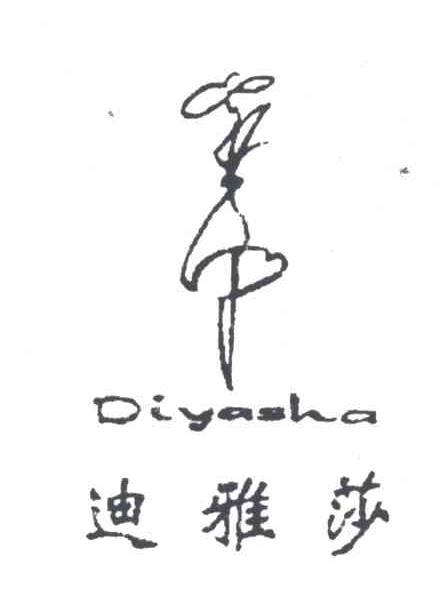 Diyasha
迪雅莎